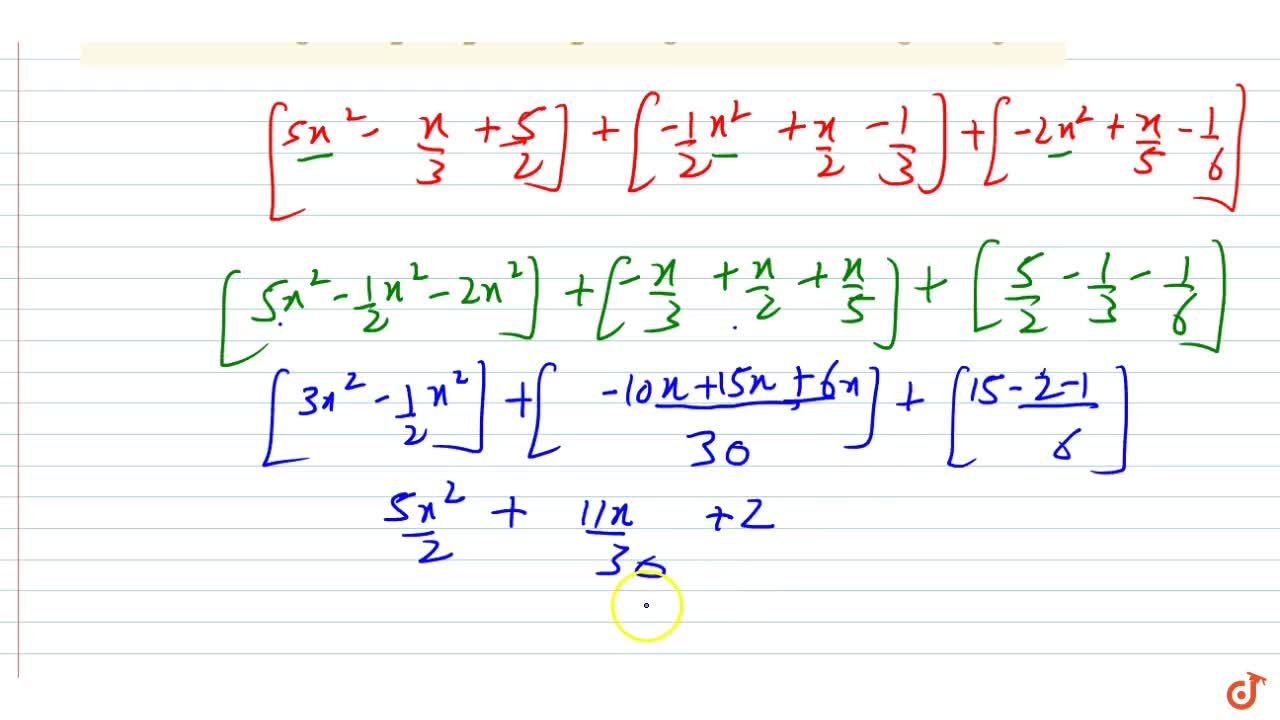 [5x² - x/3 + 5/2] + [-1/2 x² + x/2 - 1/3] + [-2x² + x/5 - 1/6]
[5x² - 1/2 x² - 2x²] + [-x/3 + x/2 + x/5] + [5/2 - 1/3 - 1/6]
[3x² - 1/2 x²] + [(-10x + 15x + 6x)/30] + [(15 - 2 - 1)/6]
5x²/2 + 11x/30 + 2